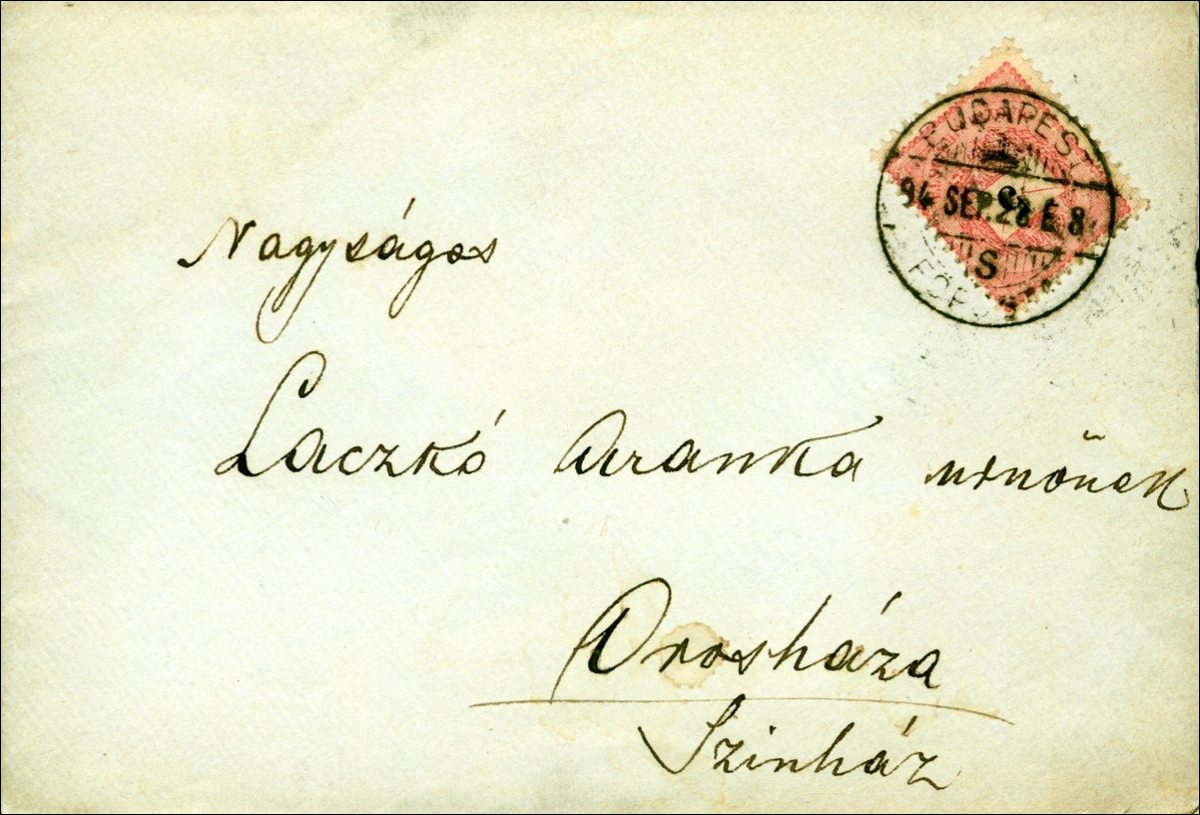 BUDAPEST
94 SEP. 28 E. 8
S
FŐPOSTA
Nagyságos
Laczkó Aranka
Orosháza
Szinház